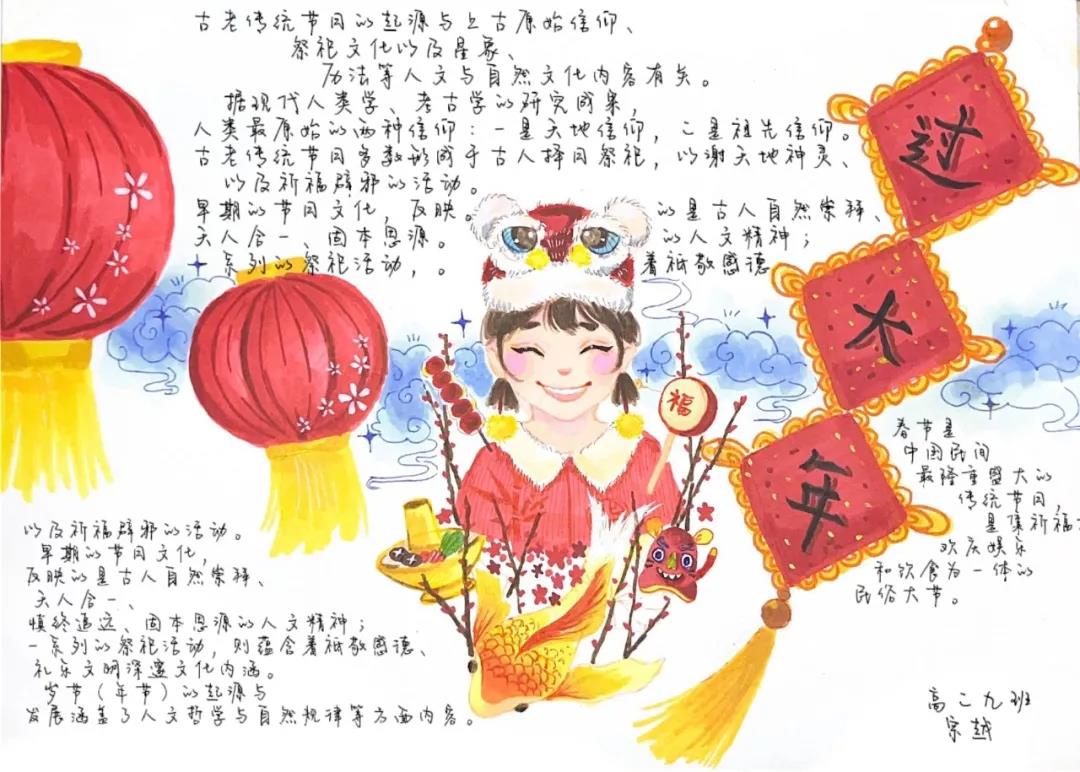 古老传统节日的起源与上古原始信仰、
祭祀文化以及星象、
历法等人文与自然文化内容有关。
据现代人类学、考古学的研究成果，
人类最原始的两种信仰：一是天地信仰，二是祖先信仰。
古老传统节日多数形成于古人择日祭祀，以谢天地神灵、
以及祈福辟邪的活动。
早期的节日文化，反映。的是古人自然崇拜、
天人合一、固本思源。的人文精神；
一系列的祭祀活动，。着祗敬感德
过
大
年
福
春节是
中国民间
最隆重盛大的
传统节日，
是集祈福、
欢庆娱乐
和饮食为一体的
民俗大节。
以及祈福辟邪的活动。
早期的节日文化，
反映的是古人自然崇拜、
天人合一、
慎终追远、固本思源的人文精神；
一系列的祭祀活动，则蕴含着祗敬感德、
礼乐文明深邃文化内涵。
岁节（年节）的起源与
发展涵盖了人文哲学与自然规律等方面内容。
高二九班
宗越